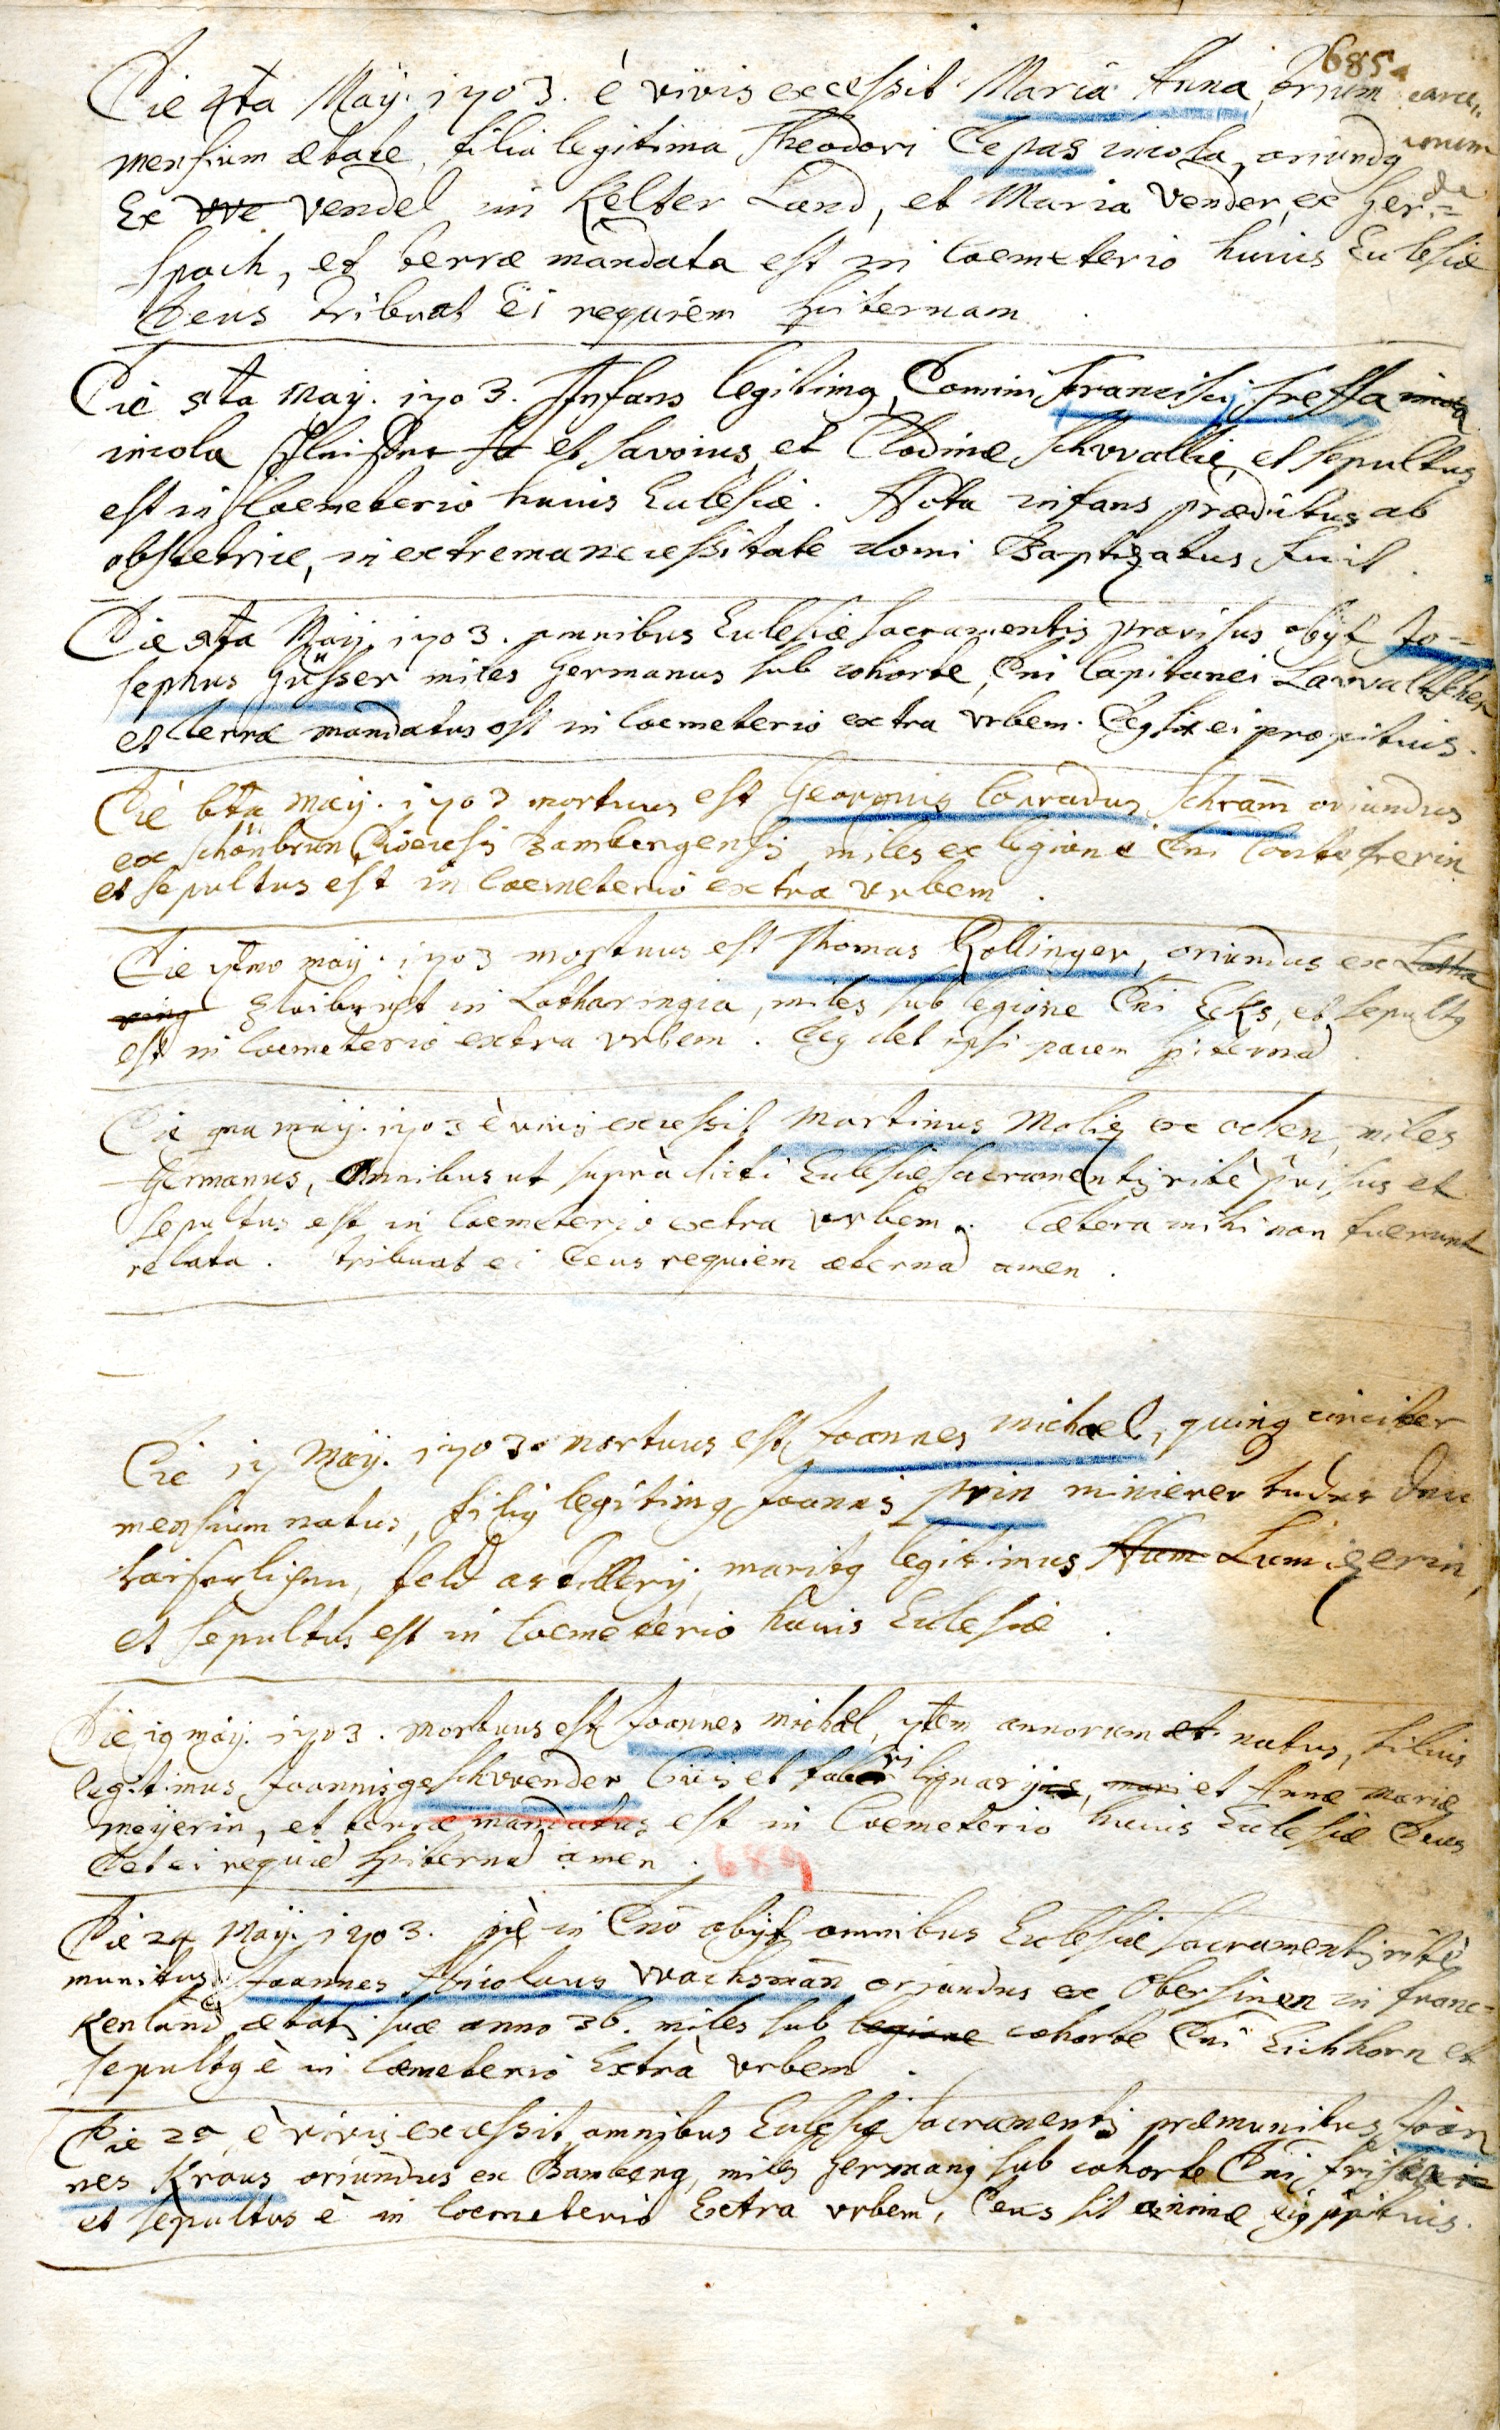 685.
Die 4ta Maÿ. 1703. è vivis excessit Maria Anna, trium
mensium ætate, filia legitima Theodori Depas incola, oriundq
Ex vve vendel in Kelter Land, et Maria Vender, ex Ger=
spach, et terræ mandata est in Coemeterio huius Eclesiæ
Deus tribuat Ei requiem spiternam.
Die 5ta May. 1703. Infans legitimq Domini Francisci Fressa incola
incola et Savoius, et Clodinæ Schvvallie, et Sepultus
est in Coemeterio huius Eclesiæ. Nota infans prædictus ab
obstetrice, in extrema necessitate domi Baptizatus fuit.
Die 5ta Maÿ 1703. omnibus Eclesiæ Sacramentis provisus obÿt Jo=
sephus Güsser miles Germanus sub cohorte Dni Capitanei
et terræ mandatus est in Coemeterio extra Vrbem. Deq sit ei propitius.
Die 6ta Maÿ. 1703 mortuus est Georgius Conradus Schram̄ oriundus
ex Schönbrun Dioecesis Bambergensis miles ex legione Dni
et sepultus est in Coemeterio extra Vrbem.
Die 7tmo maÿ. 1703 mortuus est Thomas Rollinger, oriundus ex Lotha
ring in Lotharingia, miles sub legione Dni Ecks, et sepultq
est in Coemeterio extra Vrbem. Deq det ipsi pacem spiternā.
Die 9na maÿ. 1703 è vivis excessit Martinus Moliz ex ochen, miles
Germanus, Omnibus ut suprà dicti Eclesiæ Sacramentis ritè pvisus et
Sepultus est in Coemeterio extra Vrbem. Cætera mihi non fuerunt
relata. tribuat ei Deus requiem æternā amen.
Die 17 Maÿ. 1703. mortuus est Joannes michael, quinq circiter
mensium natus, filiq legitimq Joannis prin minierer
Kaiserlichen, feld artillerÿ, maritq legitimus Lumizerin,
et sepultus est in Coemeterio huius Eclesiæ.
Die 19 maÿ. 1703. mortuus est Joannes michäl, 7tem annorum et natus, filius
legitimus Joannis geschvvender Civis et fabri lignarÿ, mari et Annæ Mariæ
meÿerin, et terræ mandatus est in Coemeterio huius Eclesiæ Deus
det ei requiē spiternā amen.
689
Die 24 Maÿ. 1703. piè in Dnō obÿt omnibus Eclesiæ Sacramentis ritè
munitus, Joannes Nicolaus VVachsman̄ oriundus ex Obersinen in Franc=
Kenland ætatis suæ anno 36. miles sub legione cohorte Dni Eichhorn et
sepultq è in Coemeterio Extrà Vrbem.
Die 25, è vivis excessit omnibus Eclesiæ Sacramentis præmunitus Joan
nes Kraus oriundus ex Bamberg, miles Germanq sub cohorte Dni
et sepultus è in Coemeterio Extra Vrbem, Deus sit animæ eiq ppitius.